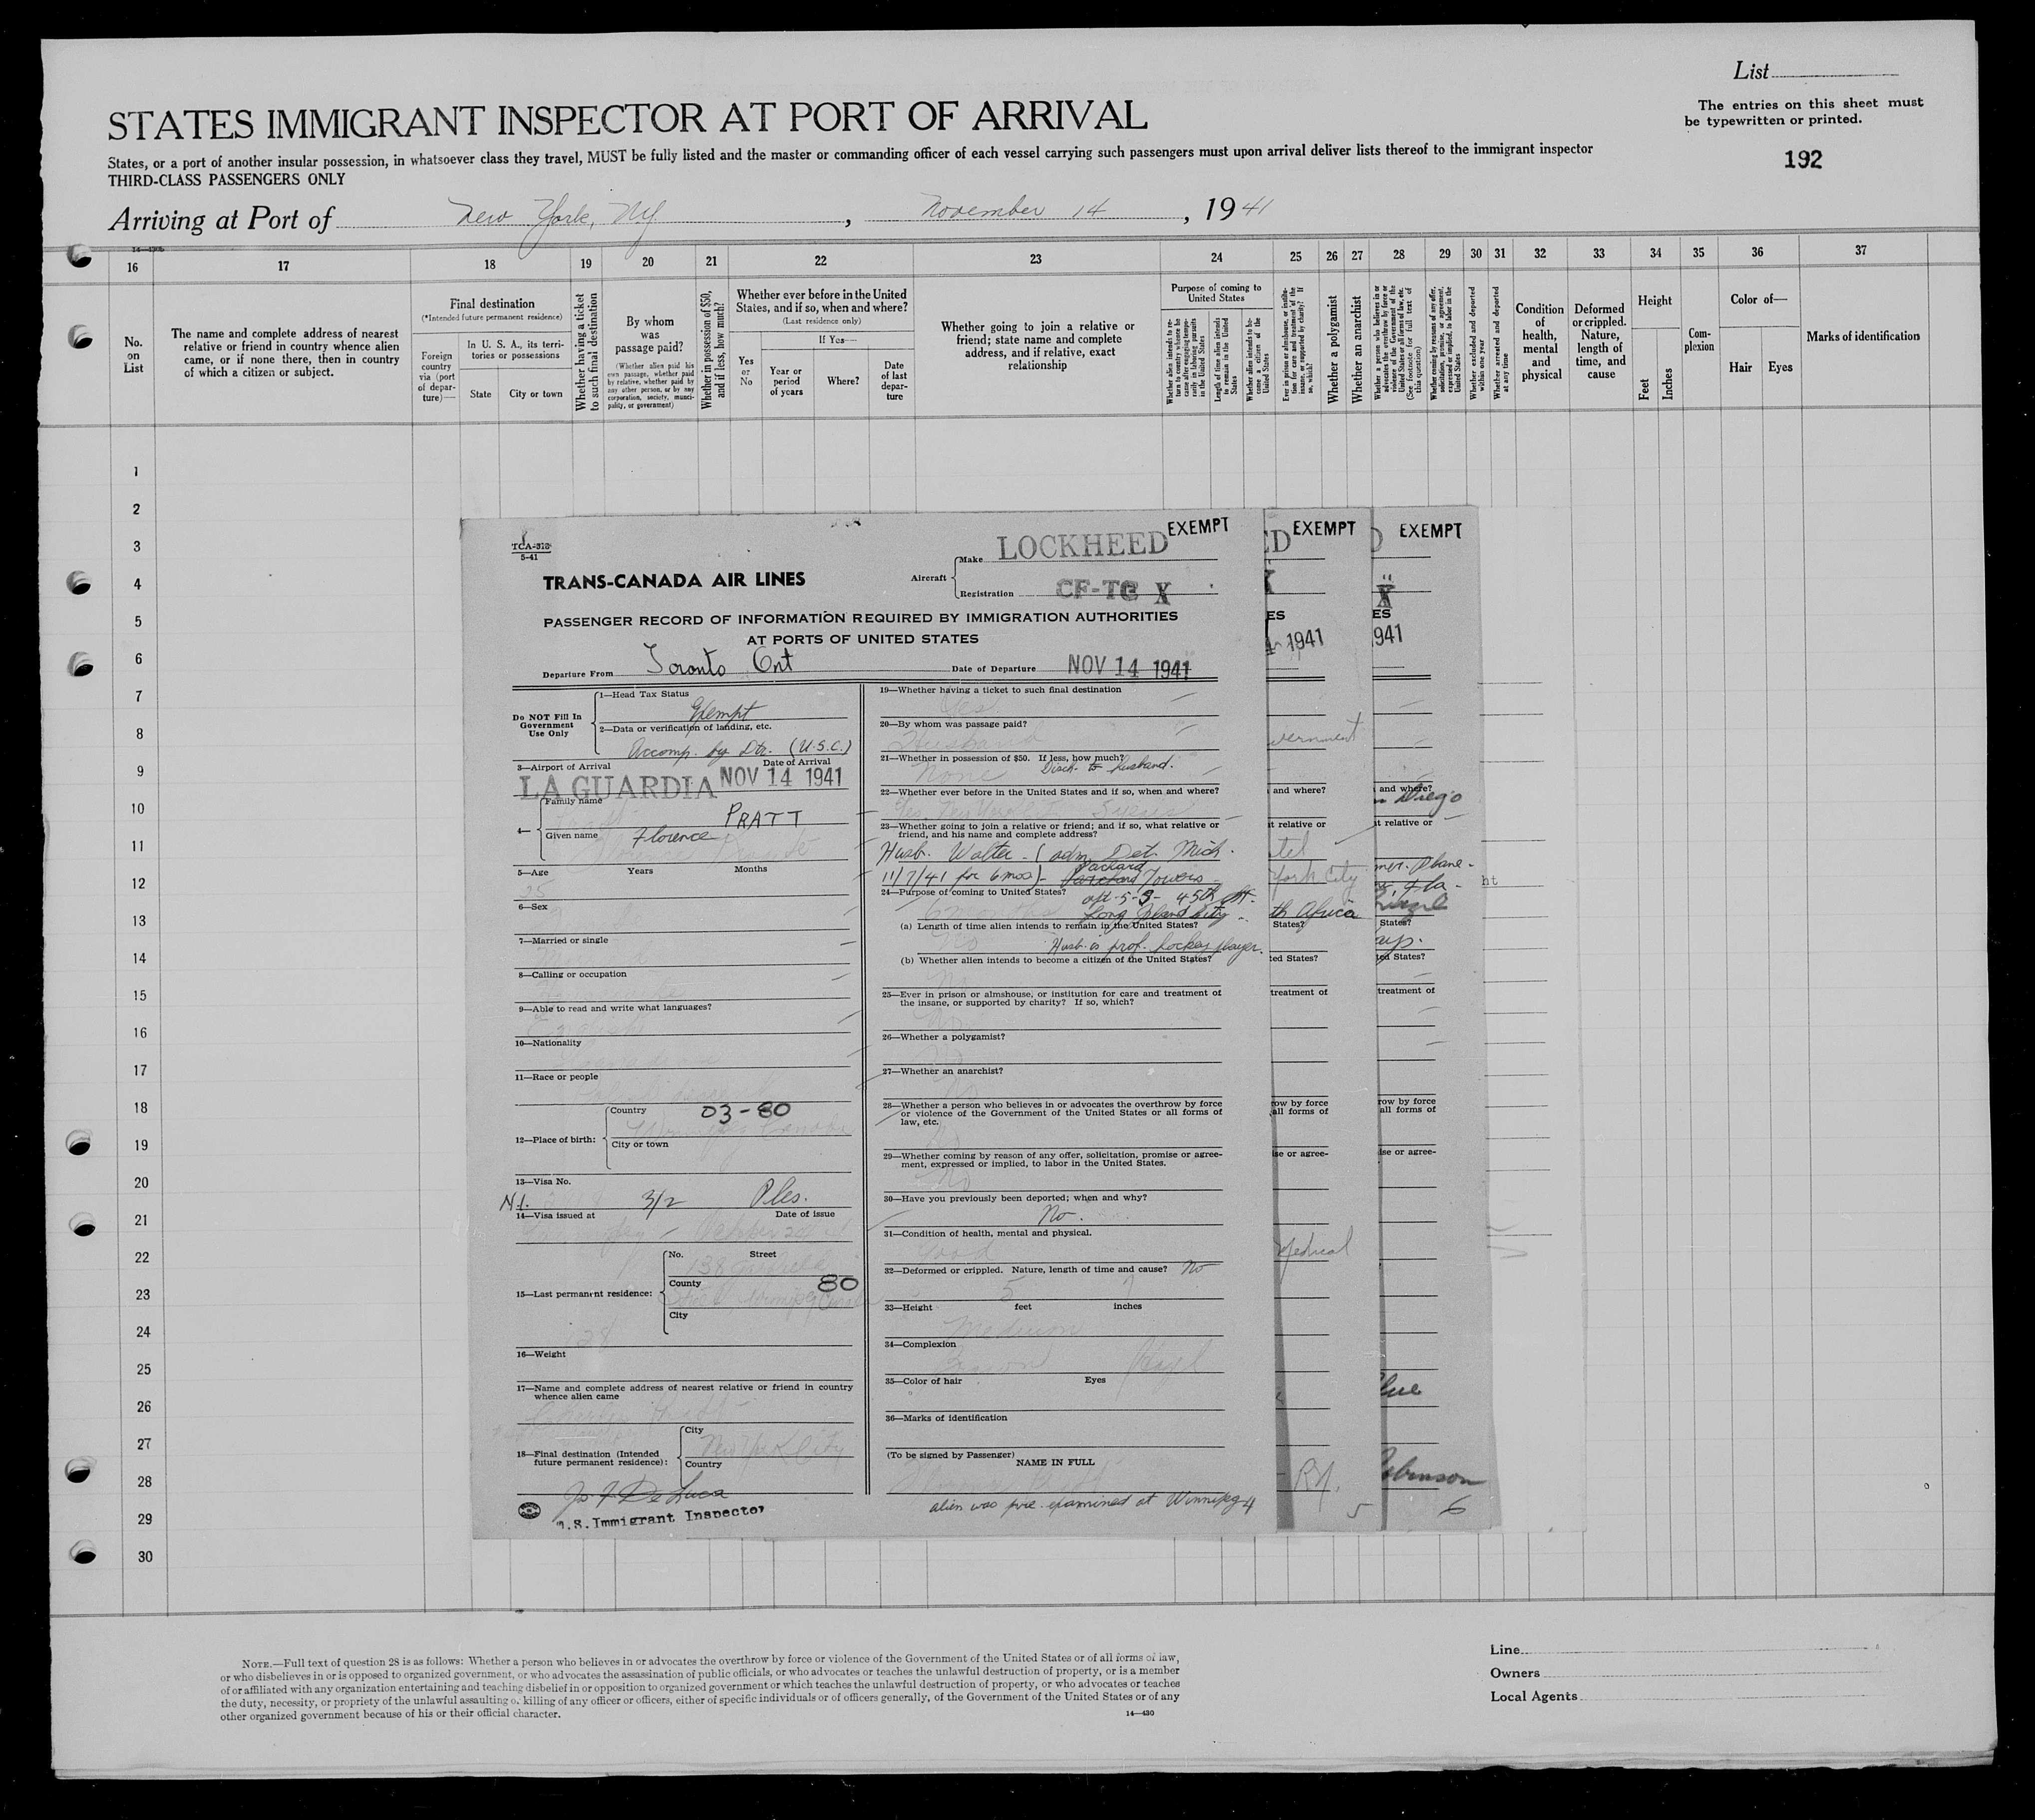 List
STATES IMMIGRANT INSPECTOR AT PORT OF ARRIVAL
The entries on this sheet must
be typewritten or printed.
States, or a port of another insular possession, in whatsoever class they travel, MUST be fully listed and the master or commanding officer of each vessel carrying such passengers must upon arrival deliver lists thereof to the immigrant inspector
THIRD-CLASS PASSENGERS ONLY
192
Arriving at Port of New York, NY, November 14, 1941
16 17 18 19 20 21 22 23 24 25 26 27 28 29 30 31 32 33 34 35 36 37
No.
on
List
The name and complete address of nearest
relative or friend in country whence alien
came, or if none there, then in country
of which a citizen or subject.
Final destination
(*Intended future permanent residence)
Foreign
country
via (port
of depar-
ture)—
In U. S. A., its terri-
tories or possessions
State
City or town
Whether having a ticket
to such final destination
By whom
was
passage paid?
(Whether alien paid his
own passage, whether paid
by relative, whether paid by
any other person, or by any
corporation, society, munici-
pality, or government)
Whether in possession of $50,
and if less, how much?
Whether ever before in the United
States, and if so, when and where?
(Last residence only)
Yes
or
No
If Yes—
Year or
period
of years
Where?
Date
of last
depar-
ture
Whether going to join a relative or
friend; state name and complete
address, and if relative, exact
relationship
Purpose of coming to
United States
Length of time alien intends
to remain in the United
States
Whether alien intends to be-
come a citizen of the
United States
Whether a polygamist
Whether an anarchist
Whether excluded and deported
within one year
Whether arrested and deported
at any time
Condition
of
health,
mental
and
physical
Deformed
or crippled.
Nature,
length of
time, and
cause
Height
Feet
Inches
Com-
plexion
Color of—
Hair
Eyes
Marks of identification
1
2
3
4
5
6
7
8
9
10
11
12
13
14
15
16
17
18
19
20
21
22
23
24
25
26
27
28
29
30
TCA-373
5-41
TRANS-CANADA AIR LINES
Aircraft
Make LOCKHEED
EXEMPT
Registration CF-TC X
PASSENGER RECORD OF INFORMATION REQUIRED BY IMMIGRATION AUTHORITIES
AT PORTS OF UNITED STATES
Departure From Toronto Ont
Date of Departure NOV 14 1941
Do NOT Fill In
Government
Use Only
1—Head Tax Status
Exempt
2—Data or verification of landing, etc.
Accomp. by Dtr. (U.S.C.)
3—Airport of Arrival
Date of Arrival
LA GUARDIA NOV 14 1941
4—
Family name
PRATT
Given name Florence
5—Age Years Months
25
6—Sex
7—Married or single
8—Calling or occupation
9—Able to read and write what languages?
English
10—Nationality
11—Race or people
12—Place of birth:
Country 03-80
City or town
13—Visa No.
N.I. 3/2 Ples.
14—Visa issued at Date of issue
15—Last permanent residence:
No. Street
138
County 80
City
16—Weight
17—Name and complete address of nearest relative or friend in country
whence alien came
18—Final destination (Intended
future permanent residence):
City
New York City
Country
Jos. F. De Luca
U.S. Immigrant Inspector
19—Whether having a ticket to such final destination
Yes
20—By whom was passage paid?
Husband
21—Whether in possession of $50. If less, how much?
None Disch. to husband.
22—Whether ever before in the United States and if so, when and where?
23—Whether going to join a relative or friend; and if so, what relative or
friend, and his name and complete address?
Husb. Walter - (adm. Det. Mich.
11/7/41 for 6 mos) - Packard Towers -
24—Purpose of coming to United States?
45th St.
6 months Long Island City
(a) Length of time alien intends to remain in the United States?
No Husb. is prof. hockey player.
(b) Whether alien intends to become a citizen of the United States?
No
25—Ever in prison or almshouse, or institution for care and treatment of
the insane, or supported by charity? If so, which?
No
26—Whether a polygamist?
No
27—Whether an anarchist?
No
28—Whether a person who believes in or advocates the overthrow by force
or violence of the Government of the United States or all forms of
law, etc.
No
29—Whether coming by reason of any offer, solicitation, promise or agree-
ment, expressed or implied, to labor in the United States.
No
30—Have you previously been deported; when and why?
No.
31—Condition of health, mental and physical.
Good
32—Deformed or crippled. Nature, length of time and cause? No
5 7
33—Height feet inches
Medium
34—Complexion
Brown Hazel
35—Color of hair Eyes
36—Marks of identification
(To be signed by Passenger)
NAME IN FULL
alien was pre-examined at Winnipeg 4
EXEMPT
ED
X
ES
1941
vernment
and where?
t relative or
tel
York City
th Africa
States?
ted States?
treatment of
row by force
all forms of
ise or agree-
Medical
RN.
5
EXEMPT
X
ES
1941
and where?
n Diego
t relative or
States?
ted States?
treatment of
row by force
all forms of
ise or agree-
lue
obinson
6
ht
NOTE.—Full text of question 28 is as follows: Whether a person who believes in or advocates the overthrow by force or violence of the Government of the United States or of all forms of law,
or who disbelieves in or is opposed to organized government, or who advocates the assassination of public officials, or who advocates or teaches the unlawful destruction of property, or is a member
of or affiliated with any organization entertaining and teaching disbelief in or opposition to organized government or which teaches the unlawful destruction of property, or who advocates or teaches
the duty, necessity, or propriety of the unlawful assaulting or killing of any officer or officers, either of specific individuals or of officers generally, of the Government of the United States or of any
other organized government because of his or their official character.
14—430
Line
Owners
Local Agents